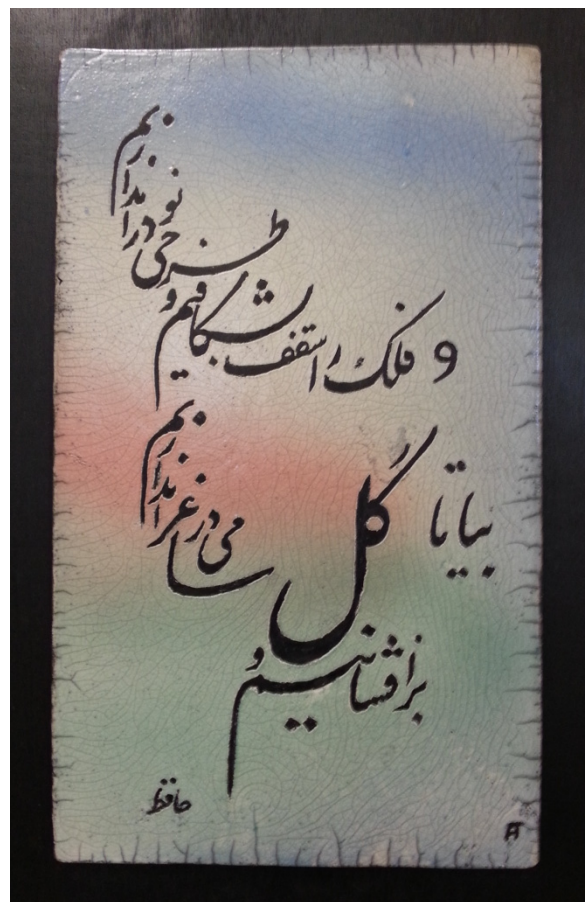 بیا تا گل
برافشانیم و
می در ساغر اندازیم
و فلک را سقف بشکافیم و
طرحی نو در اندازیم
حافظ